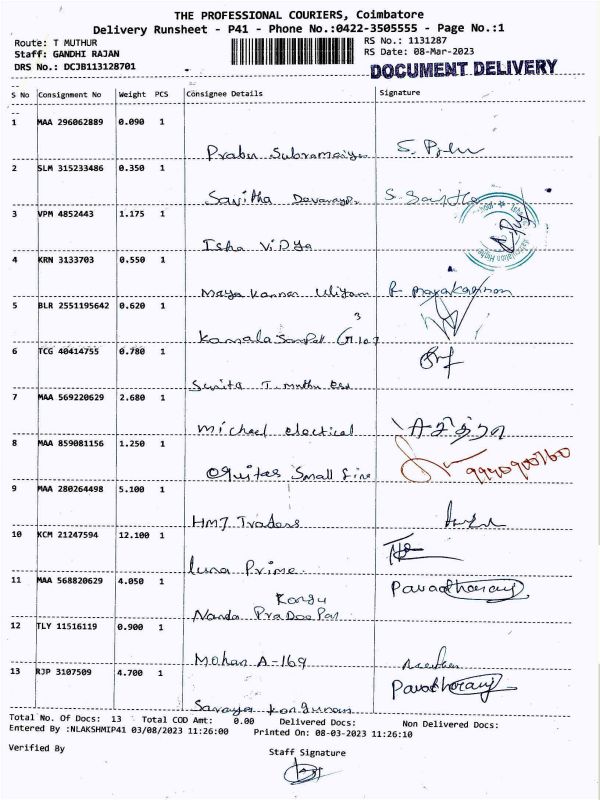 THE PROFESSIONAL COURIERS, Coimbatore
Delivery Runsheet - P41 - Phone No.:0422-3505555 - Page No.:1
Route: T MUTHUR RS No.: 1131287
Staff: GANDHI RAJAN RS Date: 08-Mar-2023
DRS No.: DCJB113128701
DOCUMENT DELIVERY
S No Consignment No Weight PCS Consignee Details Signature
1 MAA 296062889 0.090 1
Prabu Subramaiya S.
2 SLM 315233486 0.350 1
Savitha
3 VPM 4852443 1.175 1
Isha ViDya
4 KRN 3133703 0.550 1
Maya Kannan
5 BLR 2551195642 0.620 1
Kamala
6 TCG 40414755 0.780 1
Sunita T. Muthu
7 MAA 569220629 2.680 1
Michael electical
8 MAA 859081156 1.250 1
Small 9940900760
9 MAA 280264498 5.100 1
Traders
10 KCM 21247594 12.100 1
Luna Prime
11 MAA 568820629 4.050 1
Kongu
Nanda
12 TLY 11516119 0.900 1
Mohan A-169
13 RJP 3107509 4.700 1
Total No. Of Docs: 13 Total COD Amt: 0.00 Delivered Docs: Non Delivered Docs:
Entered By :NLAKSHMIP41 03/08/2023 11:26:00 Printed On: 08-03-2023 11:26:10
Verified By Staff Signature